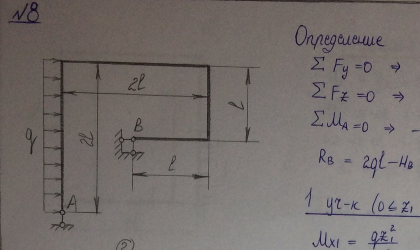 №8
2l
l
q
2l
B
l
A
Определение
Σ Fy=0 ⇒
Σ Fz=0 ⇒
Σ MA=0 ⇒ -
RB = 2ql-HB
1 уч-к (0≤z1
Mx1 = qz1²